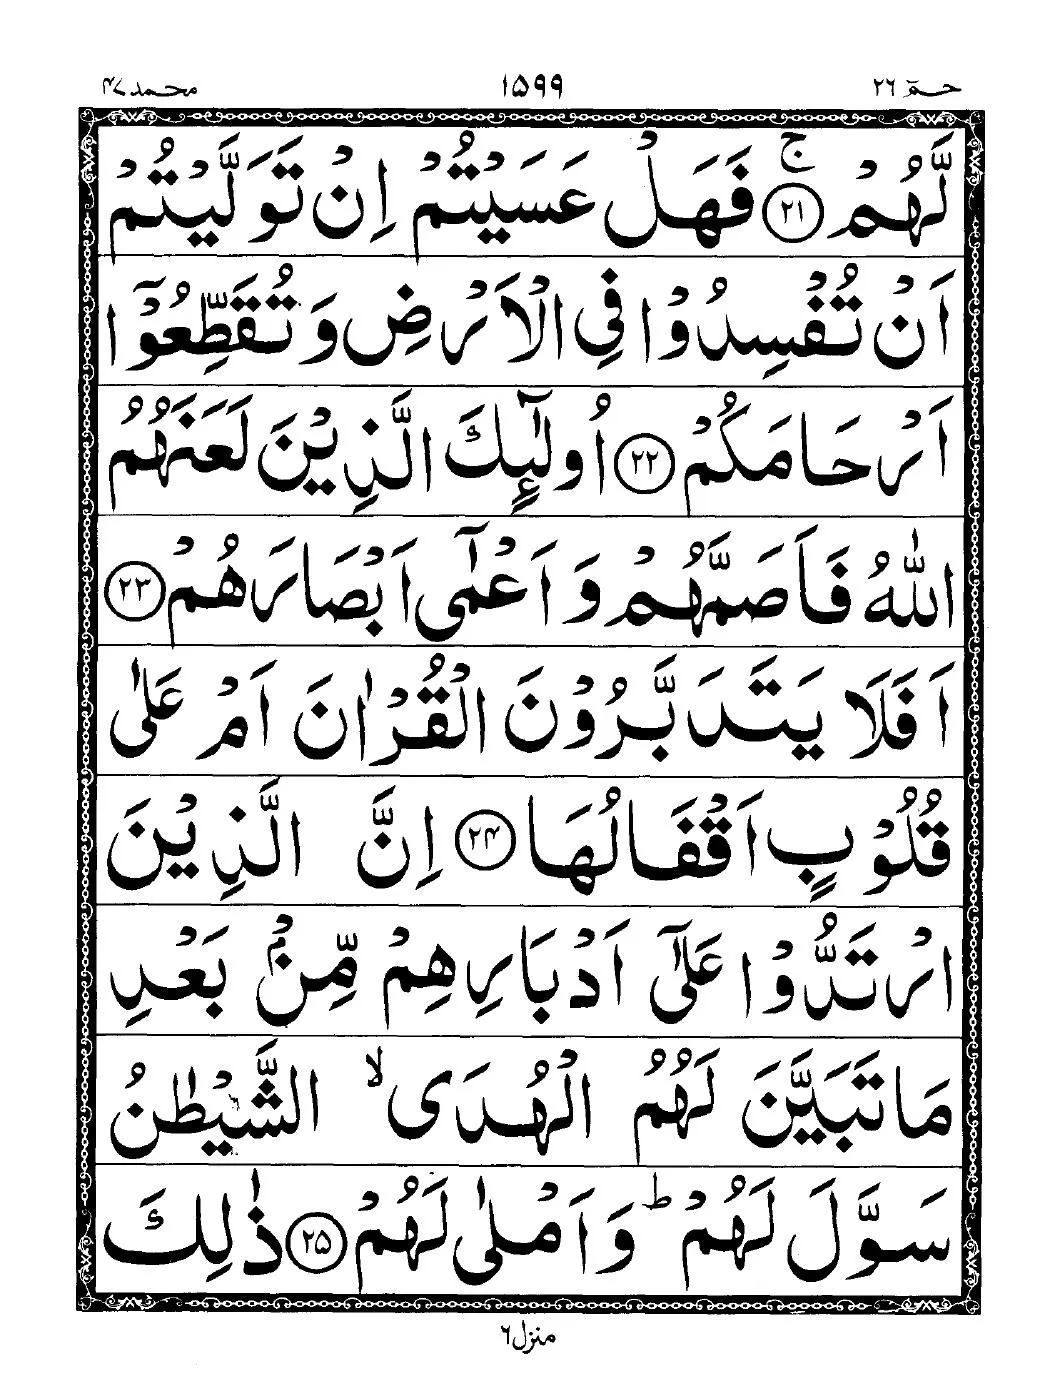 حٰمٓ ٢٦ ١٥٩٩ محمد ٤٧
لَّهُمْ ﴿٢١﴾ ۚ فَهَلْ عَسَيْتُمْ اِنْ تَوَلَّيْتُمْ
اَنْ تُفْسِدُوْا فِي الْاَرْضِ وَتُقَطِّعُوْٓا
اَرْحَامَكُمْ ﴿٢٢﴾ اُولٰٓئِكَ الَّذِيْنَ لَعَنَهُمُ
اللّٰهُ فَاَصَمَّهُمْ وَاَعْمٰٓى اَبْصَارَهُمْ ﴿٢٣﴾
اَفَلَا يَتَدَبَّرُوْنَ الْقُرْاٰنَ اَمْ عَلٰى
قُلُوْبٍ اَقْفَالُهَا ﴿٢٤﴾ اِنَّ الَّذِيْنَ
ارْتَدُّوْا عَلٰٓى اَدْبَارِهِمْ مِّنْۢ بَعْدِ
مَا تَبَيَّنَ لَهُمُ الْهُدَى ۙ الشَّيْطٰنُ
سَوَّلَ لَهُمْ ؕ وَاَمْلٰى لَهُمْ ﴿٢٥﴾ ذٰلِكَ
منزل ٦